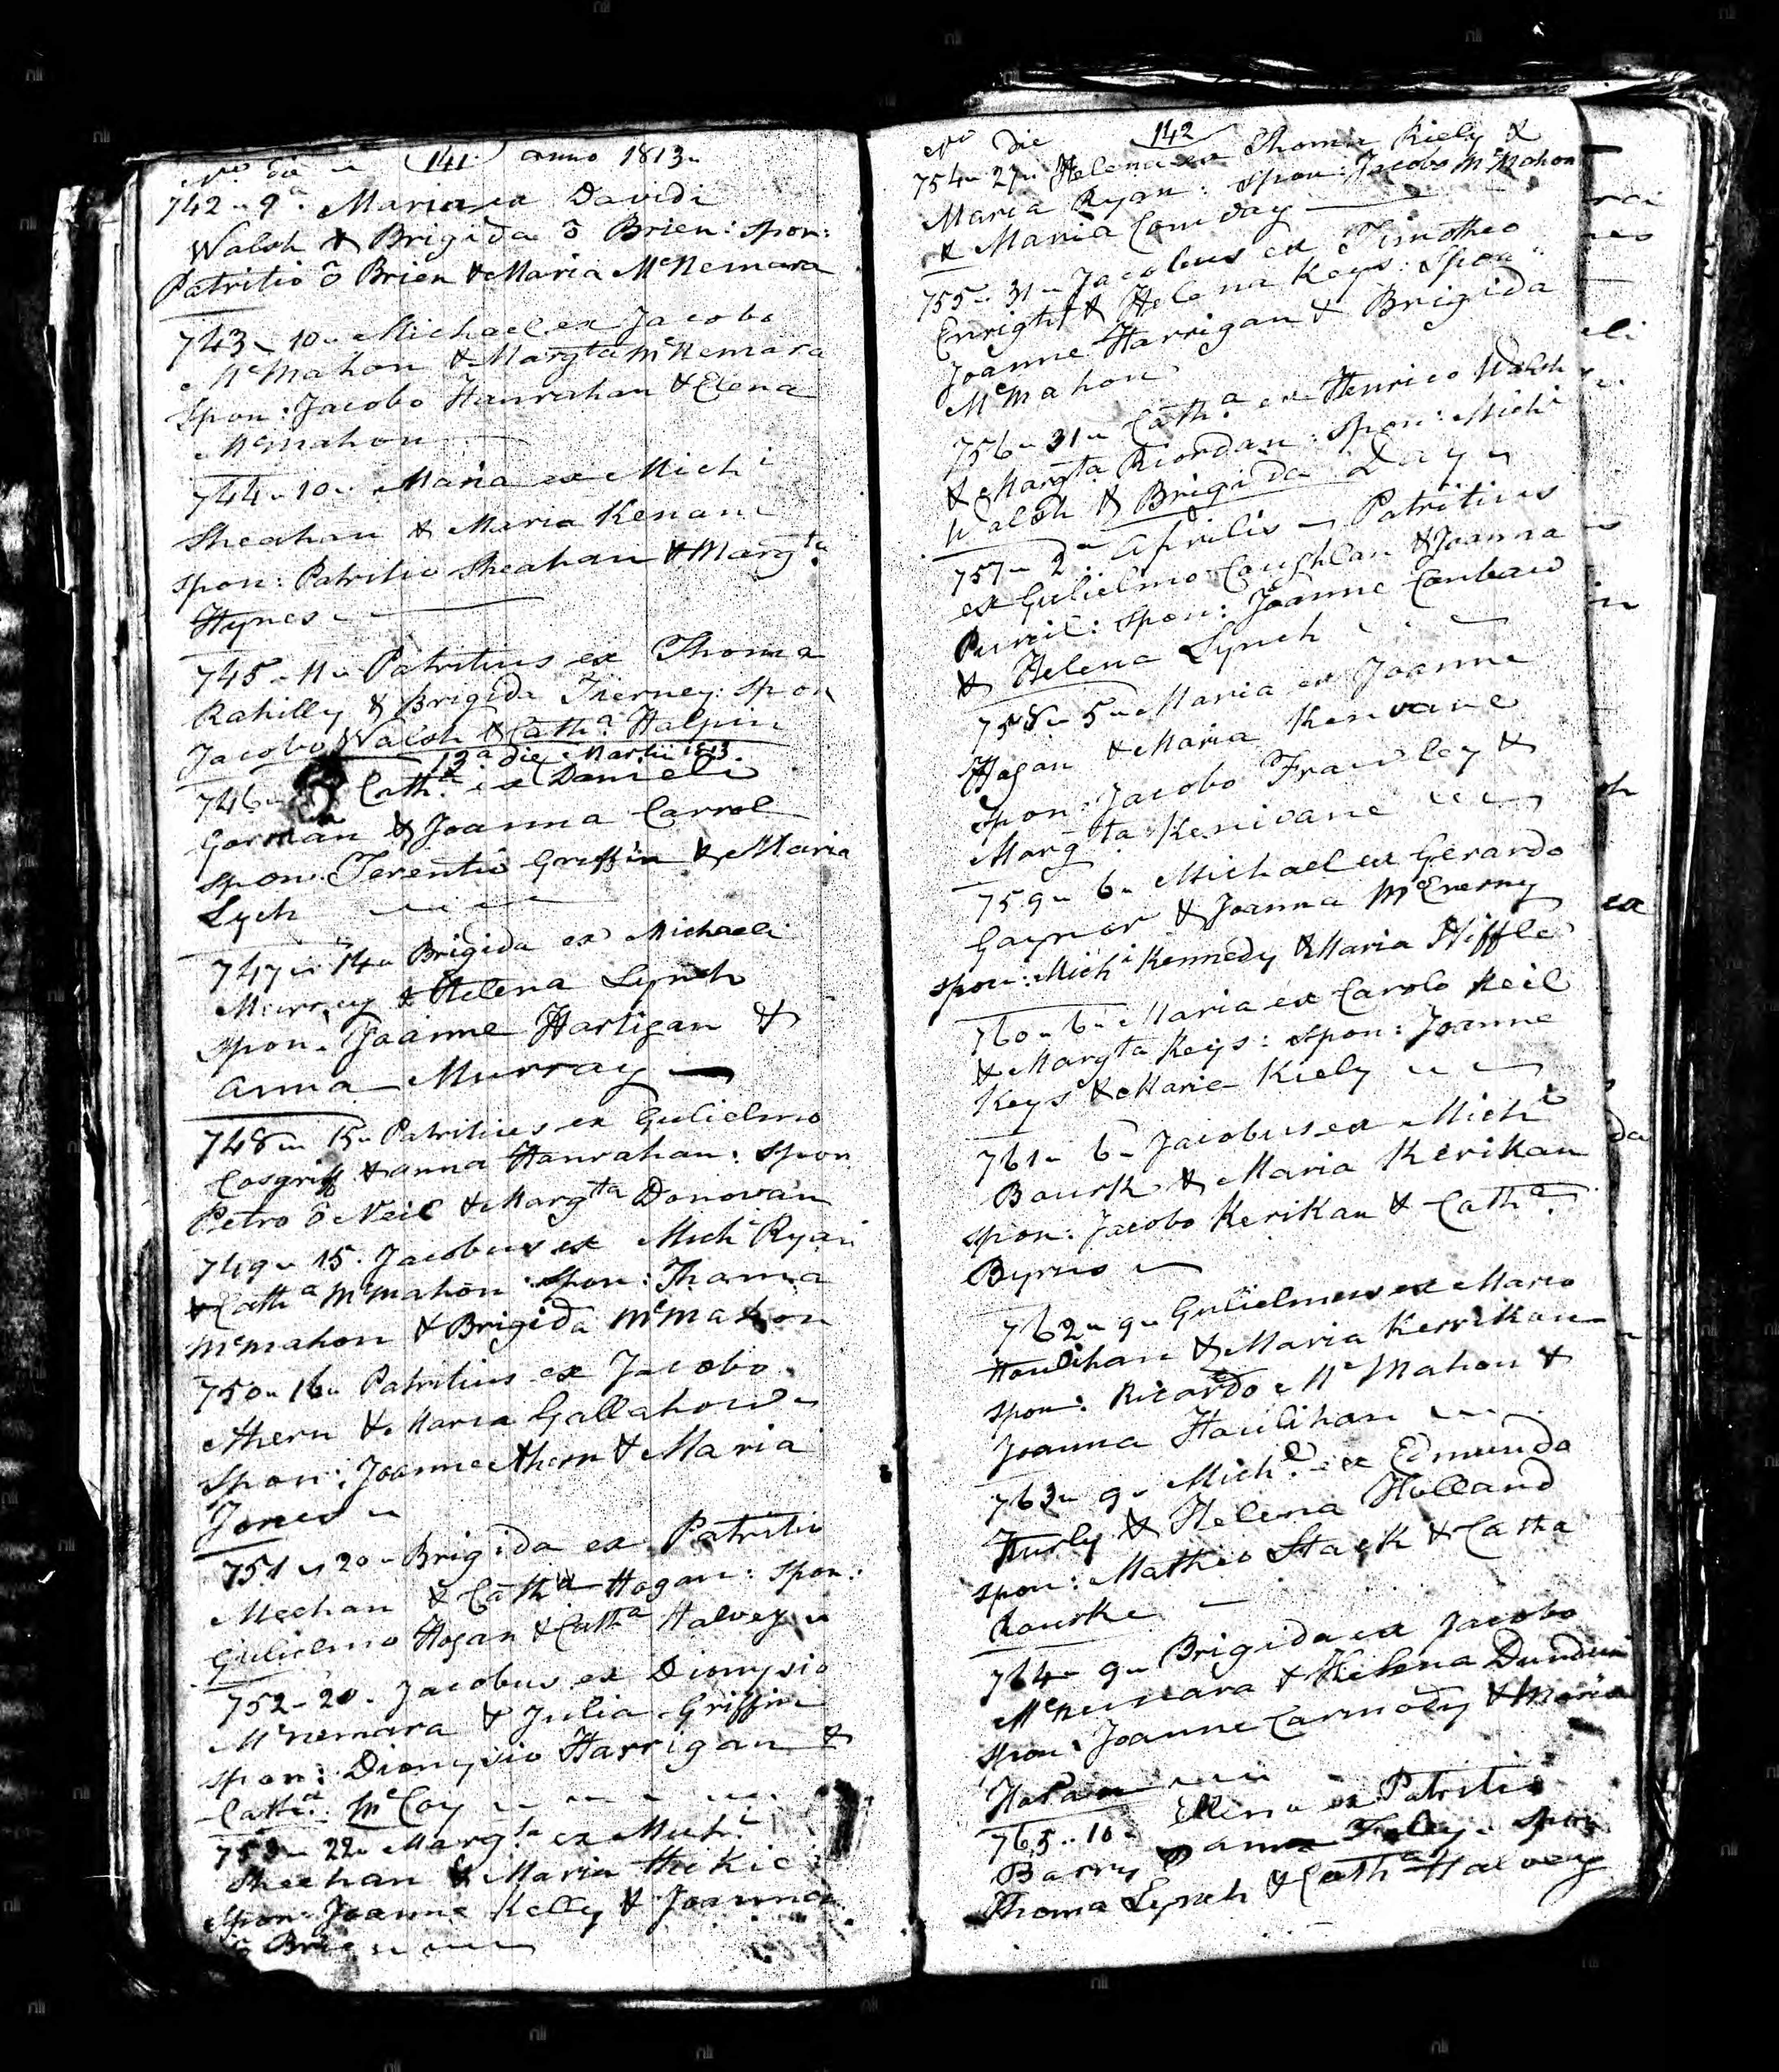 No die 141 anno 1813
742 9a Maria ex Davidi
Walsh & Brigida ō Brien: spon:
Patritio ō Brien & Maria McNemara
743 10 Michael ex Jacobo
McMahon & Margta McNemara
spon: Jacobo Hanrahan & Elena
McMahon
744 10 Maria ex Michi
Sheahan & Maria Kenan
spon: Patritio Sheahan & Margta
Hynes
745 11 Patritius ex Thoma
Rahilly & Brigida Tierney: spon
Jacobo Walsh & Catha Halpin
12a die Martii 1813
746 Catha ex Danieli
Gorman & Joanna Carrol
spon: Terentio Griffin & Maria
Lych
747 14 Brigida ex Michaeli
Murray & Helena Lynch
spon: Joanne Hartigan &
Anna Murray
748 15 Patritius ex Gulielmo
Cosgriff & Anna Hanrahan: spon
Petro ō Neil & Margta Donovan
749 15 Jacobus ex Michi Ryan
& Catha McMahon: spon: Thoma
McMahon & Brigida McMahon
750 16 Patritius ex Jacobo
Ahern & Maria Gallahow
spon: Joanne Ahern & Maria
Jones
751 20 Brigida ex Patritio
Meehan & Catha Hogan: spon:
Gulielmo Hogan & Catha Halvey
752 20 Jacobus ex Dionysio
McNemara & Julia Griffin
spon: Dionysio Harrigan &
Catha McCoy
753 22 Margta ex Michi
Sheehan & Maria Hickie
spon: Joanne Kelly & Joanna
ō Brien
No Die 142
754 27 Helena ex Thoma Kiely &
Maria Ryan: spon: Jacobo McMahon
& Maria Conway
755 31 Jacobus ex Timotheo
Enright & Helena Keys: spon
Joanne Harrigan & Brigida
McMahon
756 31 Catha ex Henrico Walsh
& Margta Riordan: spon: Michi
Walsh & Brigida Day
757 2a Aprilis Patritius
ex Gulielmo Coughlan & Joanna
Purcil: spon: Joanne
& Helena Lynch
758 5 Maria ex Joanne
Hogan & Maria Kenivane
spon: Jacobo Frawley &
Margta Kenivane
759 6 Michael ex Gerardo
Gaynor & Joanna McEnerny
spon: Michi Kennedy & Maria Hiffle
760 6 Maria ex Carolo Neil
& Margta Keys: spon: Joanne
Keys & Maria Kiely
761 6 Jacobus ex Michi
Bourk & Maria Kerikan
spon: Jacobo Kerikan & Catha
Byrns
762 9 Gulielmus ex Marco
Houlihan & Maria Kerrikan
spon: Ricardo McMahon &
Joanna Houlihan
763 9 Michl ex Edmundo
Hurly & Helena Holland
spon: Matheo Stack & Catha
Rourke
764 9 Brigida ex Jacobo
McNemara & Helena
spon: Joanne Carmody & Maria
765 10 Ellena ex Patritio
Barry & Anna Foley: spon
Thoma Lynch & Catha Halvey